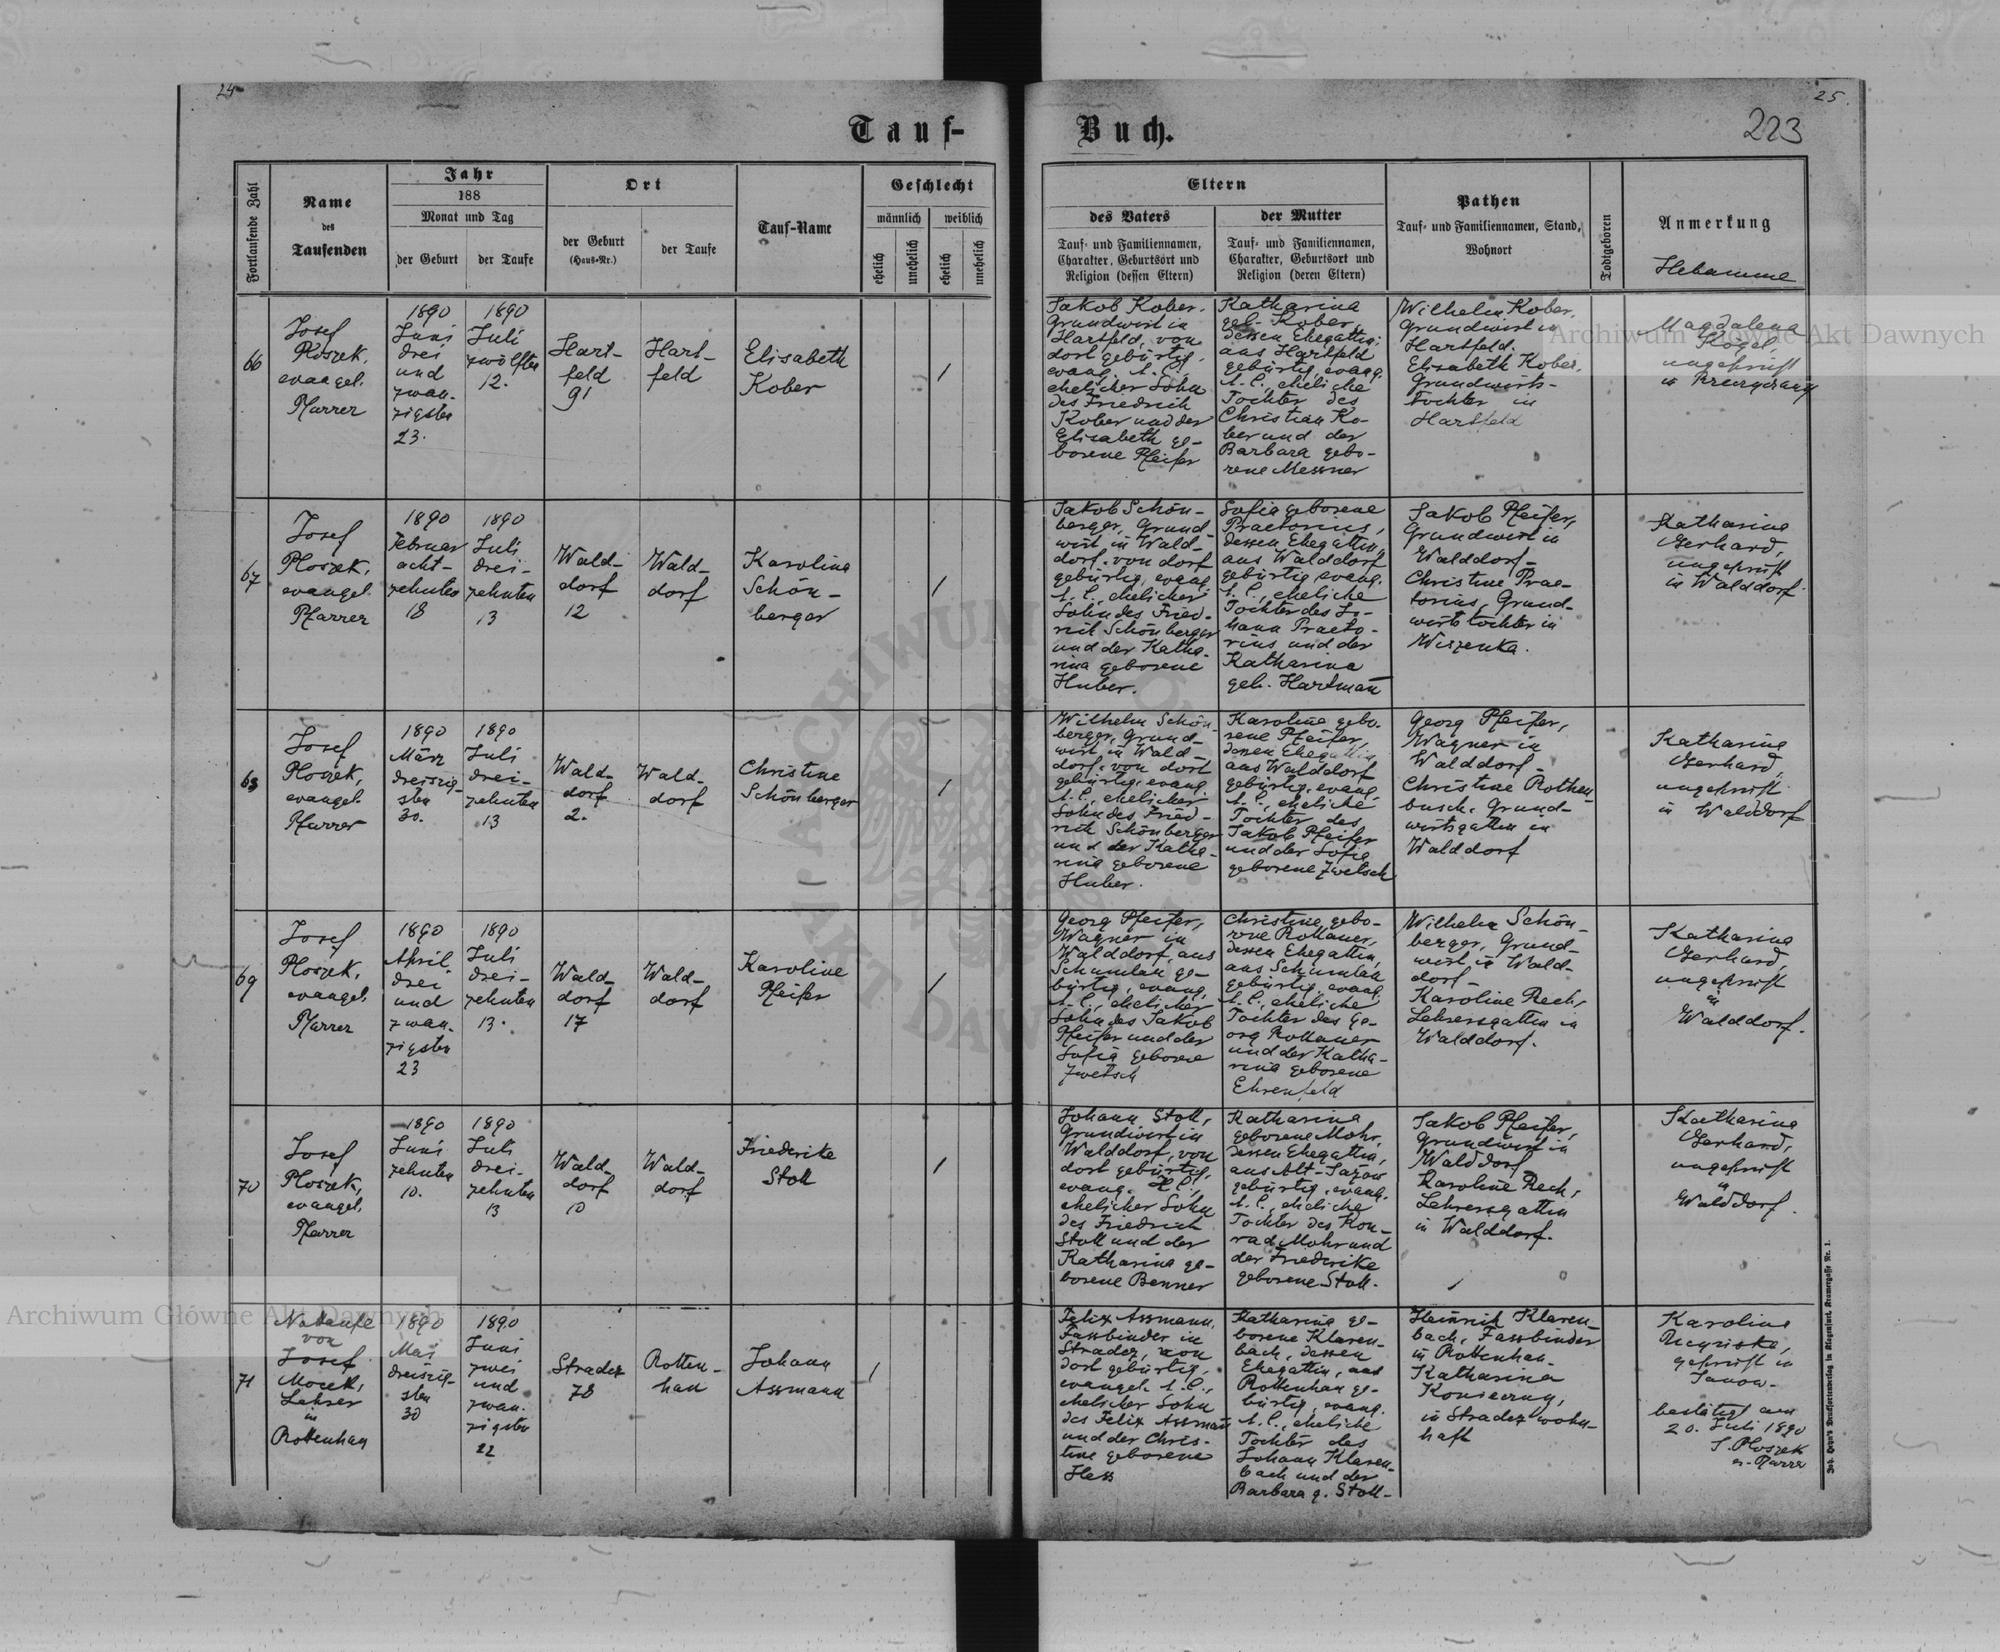 24
25.
Tauf-
Buch.
223
Fortlaufende Zahl
Name
des
Taufenden
Jahr
188
Monat und Tag
der Geburt
der Taufe
Ort
der Geburt
(Haus-Nr.)
der Taufe
Tauf-Name
Geschlecht
männlich
weiblich
ehelich
unehelich
ehelich
unehelich
Eltern
des Vaters
Tauf- und Familiennamen,
Charakter, Geburtsort und
Religion (dessen Eltern)
der Mutter
Tauf- und Familiennamen,
Charakter, Geburtsort und
Religion (deren Eltern)
Pathen
Tauf- und Familiennamen, Stand,
Wohnort
Todtgeboren
Anmerkung
Hebamme
66
Josef
Ploszek,
evangel.
Pfarrer
1890
Juni
drei
und
zwan-
zigsten
23.
1890
Juli
zwölften
12.
Hart-
feld
91
Hart-
feld
Elisabeth
Kober
1
Jakob Kober,
Grundwirt in
Hartfeld, von
dort gebürtig,
evang. A. C.,
ehelicher Sohn
des Friedrich
Kober und der
Elisabeth ge-
borene Pfeifer
Katharina
geb. Kober,
dessen Ehegattin,
aus Hartfeld
gebürtig, evang.
A. C., eheliche
Tochter des
Christian Ko-
ber und der
Barbara gebo-
rene Messner
Wilhelm Kober,
Grundwirt in
Hartfeld.
Elisabeth Kober,
Grundwirts-
tochter in
Hartfeld
Magdalena
Kogel
ungeprüft
in
67
Josef
Ploszek,
evangel.
Pfarrer
1890
Februar
acht-
zehnten
18
1890
Juli
drei-
zehnten
13
Wald-
dorf
12
Wald-
dorf
Karolina
Schön-
berger
1
Jakob Schön-
berger, Grund-
wirt in Wald-
dorf, von dorf
gebürtig, evang.
A. C., ehelicher
Sohn des Fried-
rich Schönberger
und der Katha-
rina geborene
Huber.
Sofia geborene
Praetorius,
dessen Ehegattin,
aus Walddorf
gebürtig, evang.
A. C., eheliche
Tochter des Jo-
hann Praeto-
rius und der
Katharina
geb. Hartmañ
Jakob Pfeifer,
Grundwirt in
Walddorf -
Christine Prae-
torius, Grund-
wirtstochter in
Wiszenka.
Katharina
Gerhard,
ungeprüft
in Walddorf.
68
Josef
Ploszek,
evangel.
Pfarrer
1890
März
dreiszig-
sten
30.
1890
Juli
drei-
zehnten
13
Wald-
dorf
2.
Wald-
dorf
Christine
Schönberger
1
Wilhelm Schön-
berger, Grund-
wirt in Wald-
dorf, von dort
gebürtig, evang.
A. C., ehelicher
Sohn des Fried-
rich Schönberger
und der Katha-
rina geborene
Huber.
Karoline gebo-
rene Pfeifer,
dessen Ehegattin,
aus Walddorf
gebürtig, evang.
A. C., eheliche
Tochter des
Jakob Pfeifer
und der Sofia
geborene Zwetsch
Georg Pfeifer,
Wagner in
Walddorf -
Christine Rothen-
busch, Grund-
wirtsgattin in
Walddorf
Katharina
Gerhard,
ungeprüft
in Walddorf
69
Josef
Ploszek,
evangel.
Pfarrer
1890
April
drei
und
zwan-
zigsten
23
1890
Juli
drei-
zehnten
13.
Wald-
dorf
17
Wald-
dorf
Karoline
Pfeifer
1
Georg Pfeifer,
Wagner in
Walddorf, aus
Schumlau ge-
bürtig, evang.
A. C., ehelicher
Sohn des Jakob
Pfeifer und der
Sofia geborene
Zwetsch
Christine, gebo-
rene Rollauer,
dessen Ehegattin,
aus Schumlau
gebürtig, evang.
A. C., eheliche
Tochter des Ge-
org Rollauer
und der Katha-
rina geborene
Ehrenfeld
Wilhelm Schön-
berger, Grund-
wirt in Wald-
dorf -
Karoline Rech,
Lehrersgattin in
Walddorf.
Katharina
Gerhard,
ungeprüft
in
Walddorf.
70
Josef
Ploszek,
evangel.
Pfarrer
1890
Juni
zehnten
10.
1890
Juli
drei-
zehnten
13
Wald-
dorf
10
Wald-
dorf
Friederike
Stoll
1
Johann Stoll,
Grundwirt in
Walddorf, von
dort gebürtig,
evang. A. C.,
ehelicher Sohn
des Friedrich
Stoll und der
Katharina ge-
borene Benner
Katharina
geborene Mohr,
dessen Ehegattin,
aus Alt-Jazow
gebürtig, evang.
A. C., eheliche
Tochter des Kon-
rad Mohr und
der Friederike
geborene Stoll.
Jakob Pfeifer,
Grundwirt in
Walddorf
Karoline Rech,
Lehrersgattin
in Walddorf.
Katharina
Gerhard,
ungeprüft
in
Walddorf.
71
Nottaufe
von
Josef
Mocek,
Lehrer
in
Rottenhan
1890
Mai
dreiszig-
sten
30
1890
Juni
zwei
und
zwan-
zigsten
22
Stradez
78
Rotten-
han
Johann
Assmann
1
Felix Assmann,
Fassbinder in
Stradez, von
dort gebürtig,
evangel. A. C.,
ehelicher Sohn
des Felix Assmañ
und der Chris-
tine geborene
Hess
Katharina ge-
borene Klaren-
bach, dessen
Ehegattin, aus
Rottenhan ge-
bürtig, evang.
A. C., eheliche
Tochter des
Johann Klaren-
bach und der
Barbara g. Stoll-
Heinrich Klaren-
bach, Fassbinder
in Rottenhan-
Katharina
Konieczny,
in Stradez wohn-
haft
Karolina
geprüft in
Janow-
bestätigt am
20. Juli 1890
J. Ploszek
ev. Pfarrer
Joh. Heyn's Drucksortenverlag in Klagenfurt, Kramergasse Nr. 1.
Archiwum Główne Akt Dawnych
Archiwum Główne Akt Dawnych